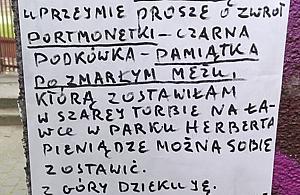 UPRZEJMIE PROSZĘ O ZWROT
PORTMONETKI - CZARNA
PODKÓWKA - PAMIĄTKA
PO ZMARŁYM MĘŻU,
KTÓRĄ ZOSTAWIŁAM
W SZAREJ TORBIE NA ŁA-
WCE W PARKU HERBERTA
PIENIĄDZE MOŻNA SOBIE
ZOSTAWIĆ.
Z GÓRY DZIĘKUJĘ.